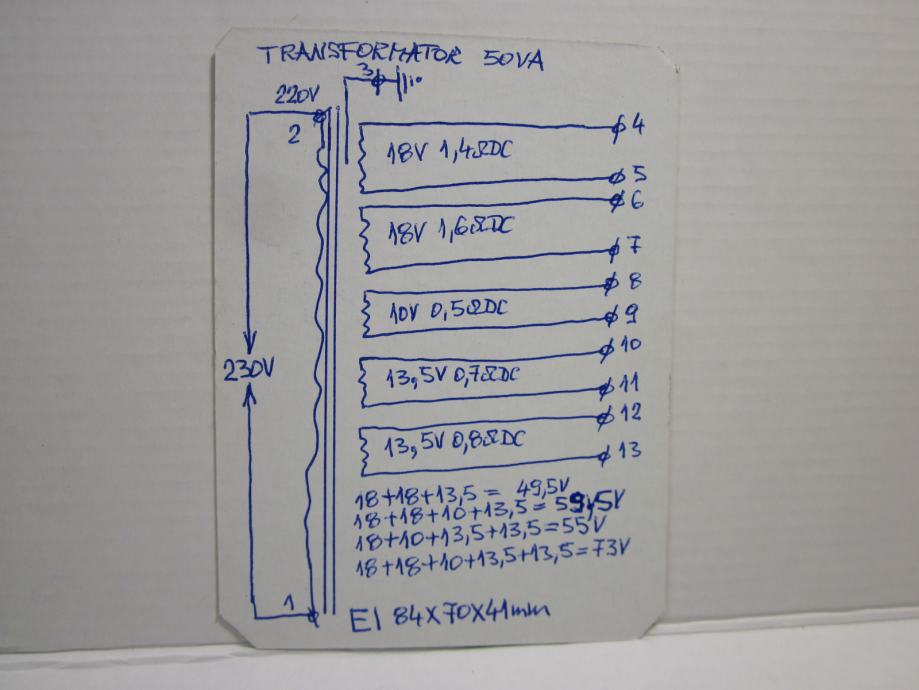 TRANSFORMATOR 50VA
3
220V
2
4
18V 1,4ΩDC
5
6
18V 1,6ΩDC
7
8
10V 0,5ΩDC
9
10
230V
13,5V 0,7ΩDC
11
12
13,5V 0,8ΩDC
13
18+18+13,5 = 49,5V
18+18+10+13,5=59,5V
18+10+13,5+13,5=55V
18+18+10+13,5+13,5=73V
1
EI 84X70X41mm